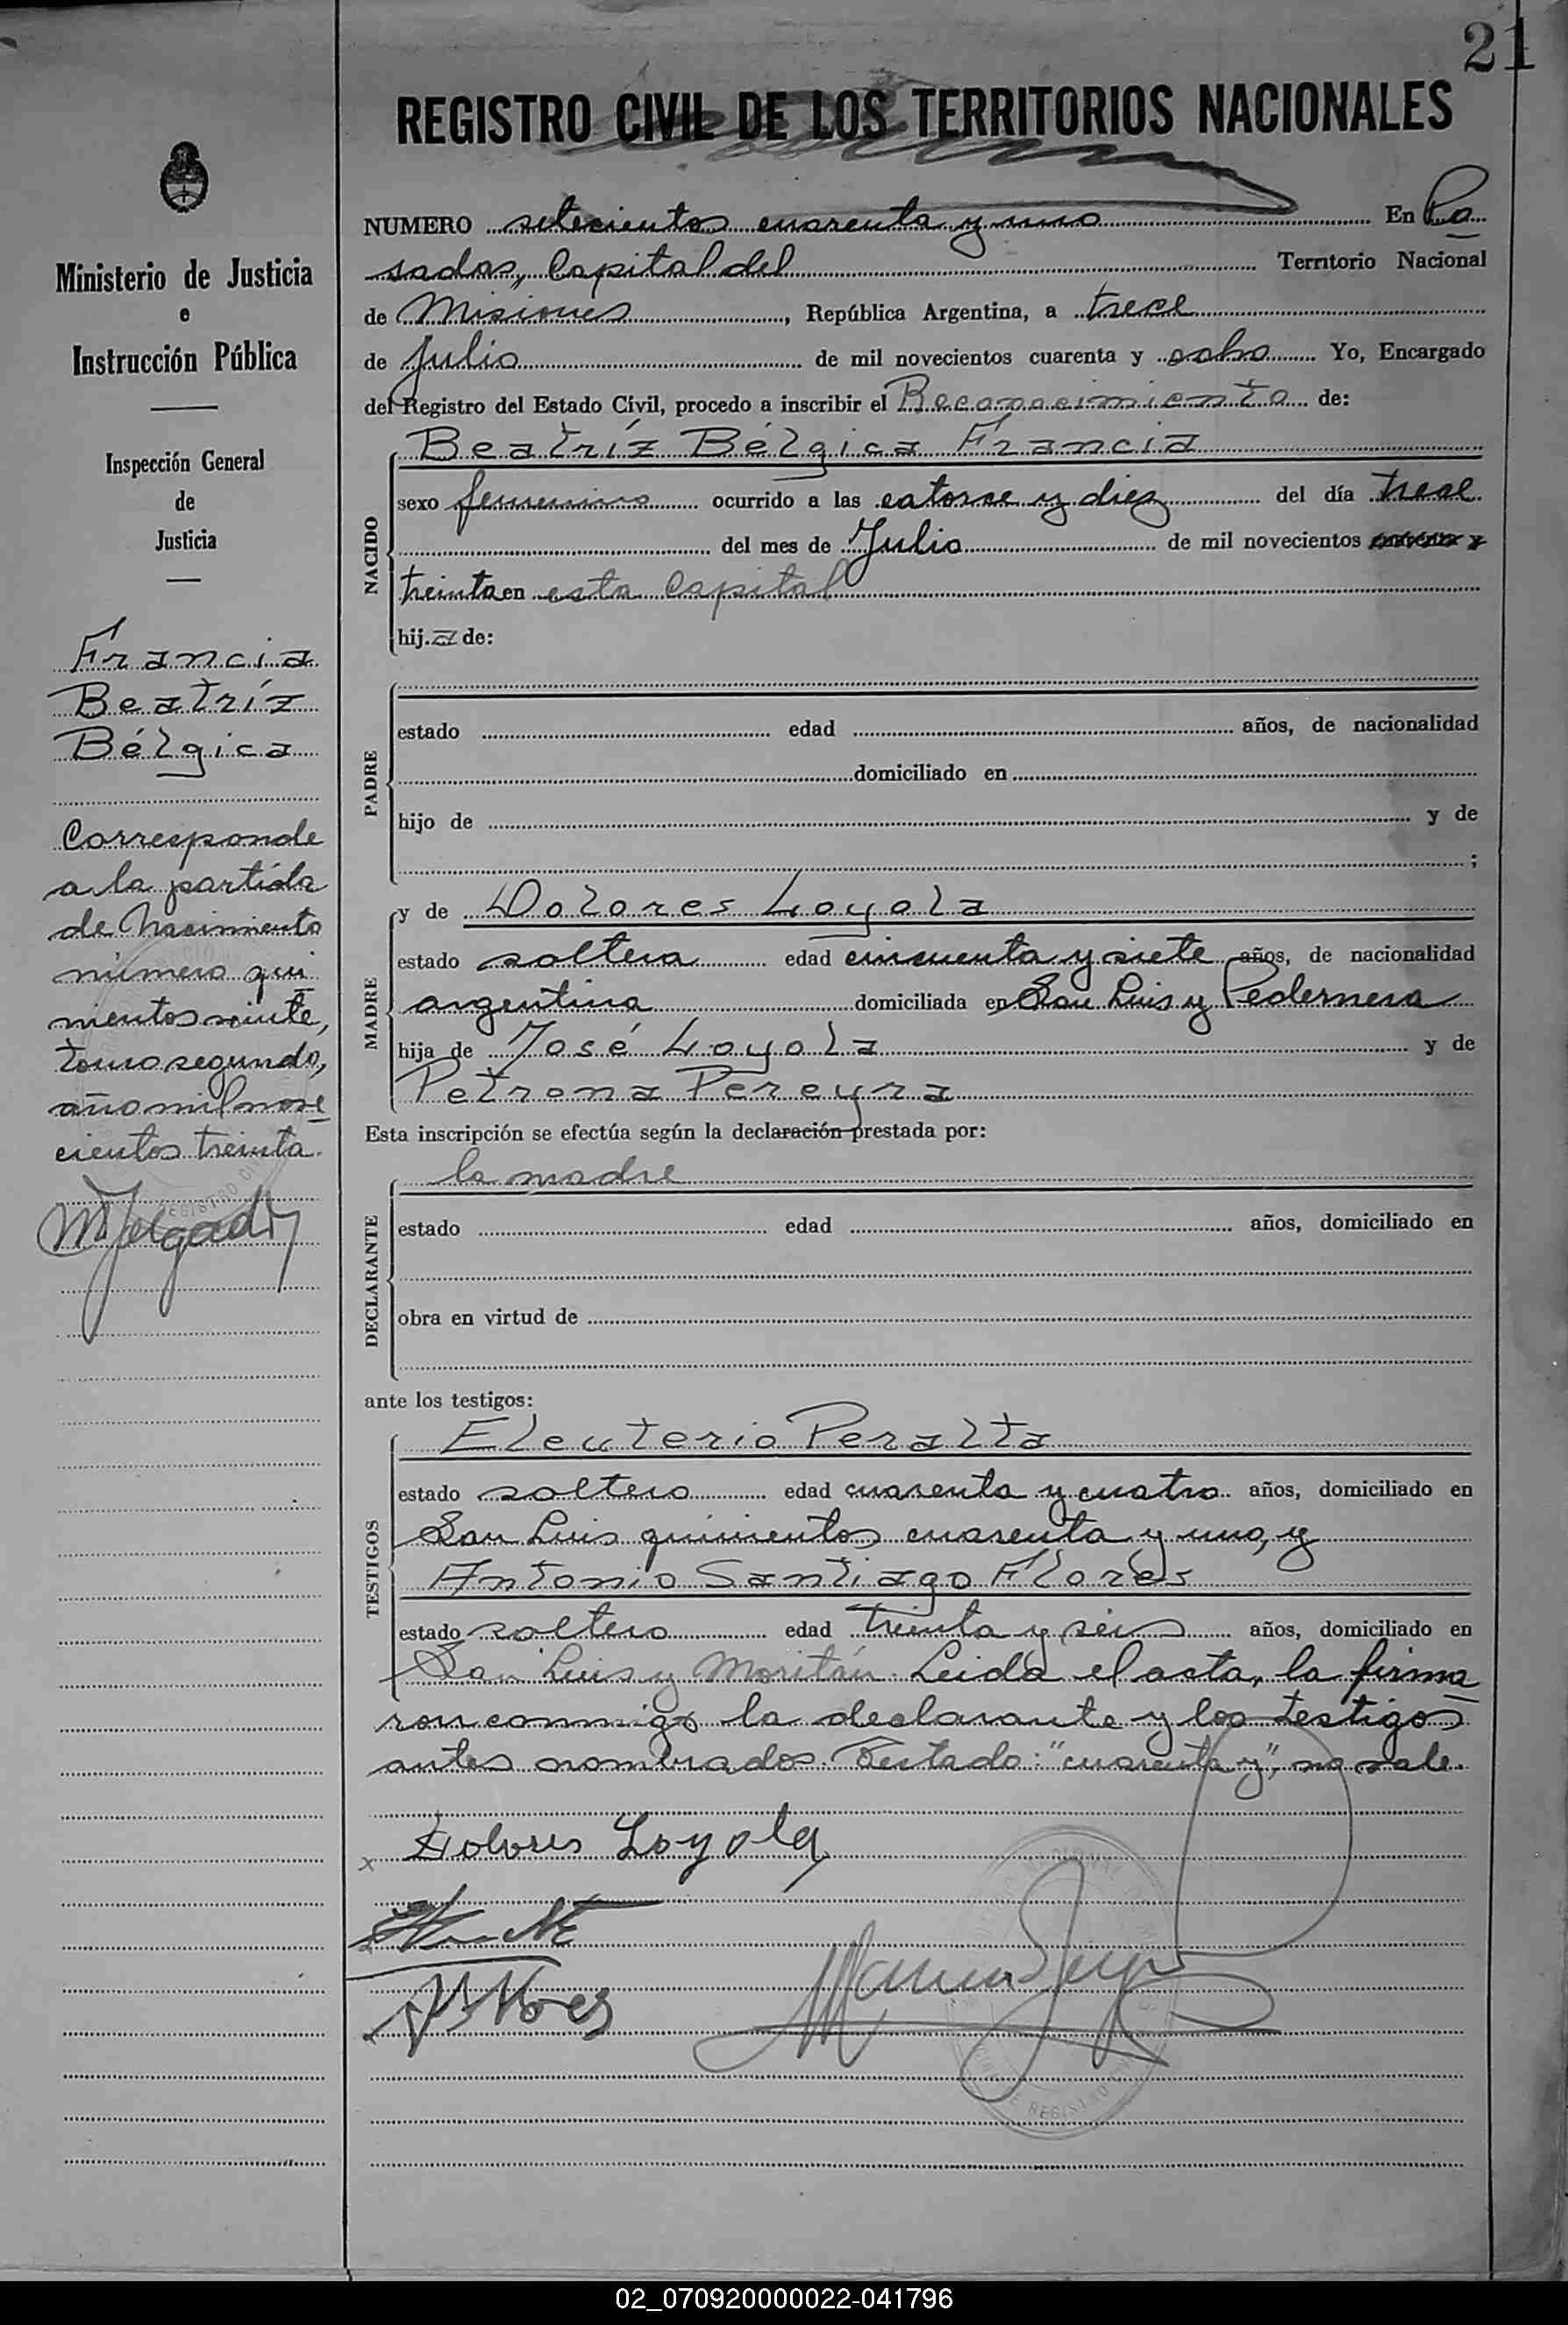 21
REGISTRO CIVIL DE LOS TERRITORIOS NACIONALES
Ministerio de Justicia
e
Instrucción Pública
Inspección General
de
Justicia
Francia
Beatríz
Bélgica
Corresponde
a la partida
de Nacimiento
número qui
nientos veinte,
tomo segundo,
año mil nove
cientos treinta.
NUMERO setecientos cuarenta y uno En Po
sadas, Capital del Territorio Nacional
de Misiones, República Argentina, a trece
de Julio de mil novecientos cuarenta y ocho Yo, Encargado
del Registro del Estado Civil, procedo a inscribir el Reconocimiento de:
NACIDO
Beatríz Bélgica Francia
sexo femenino ocurrido a las catorce y diez del día trece
del mes de Julio de mil novecientos cuarenta y
treinta en esta Capital
hij a de:
PADRE
estado edad años, de nacionalidad
domiciliado en
hijo de y de
;
MADRE
y de Dolores Loyola
estado soltera edad cincuenta y siete años, de nacionalidad
argentina domiciliada en San Luis y Pedernera
hija de José Loyola y de
Petrona Pereyra
Esta inscripción se efectúa según la declaración prestada por:
DECLARANTE
la madre
estado edad años, domiciliado en
obra en virtud de
ante los testigos:
TESTIGOS
Eleuterio Peralta
estado soltero edad cuarenta y cuatro años, domiciliado en
San Luis quinientos cuarenta y uno, y
Antonio Santiago Flores
estado soltero edad treinta y seis años, domiciliado en
San Luis y Moritán. Leida el acta, la firma
ron conmigo la declarante y los testigos
antes nombrados. Testado: "cuarenta y", no vale.
x Dolores Loyola
02_070920000022-041796